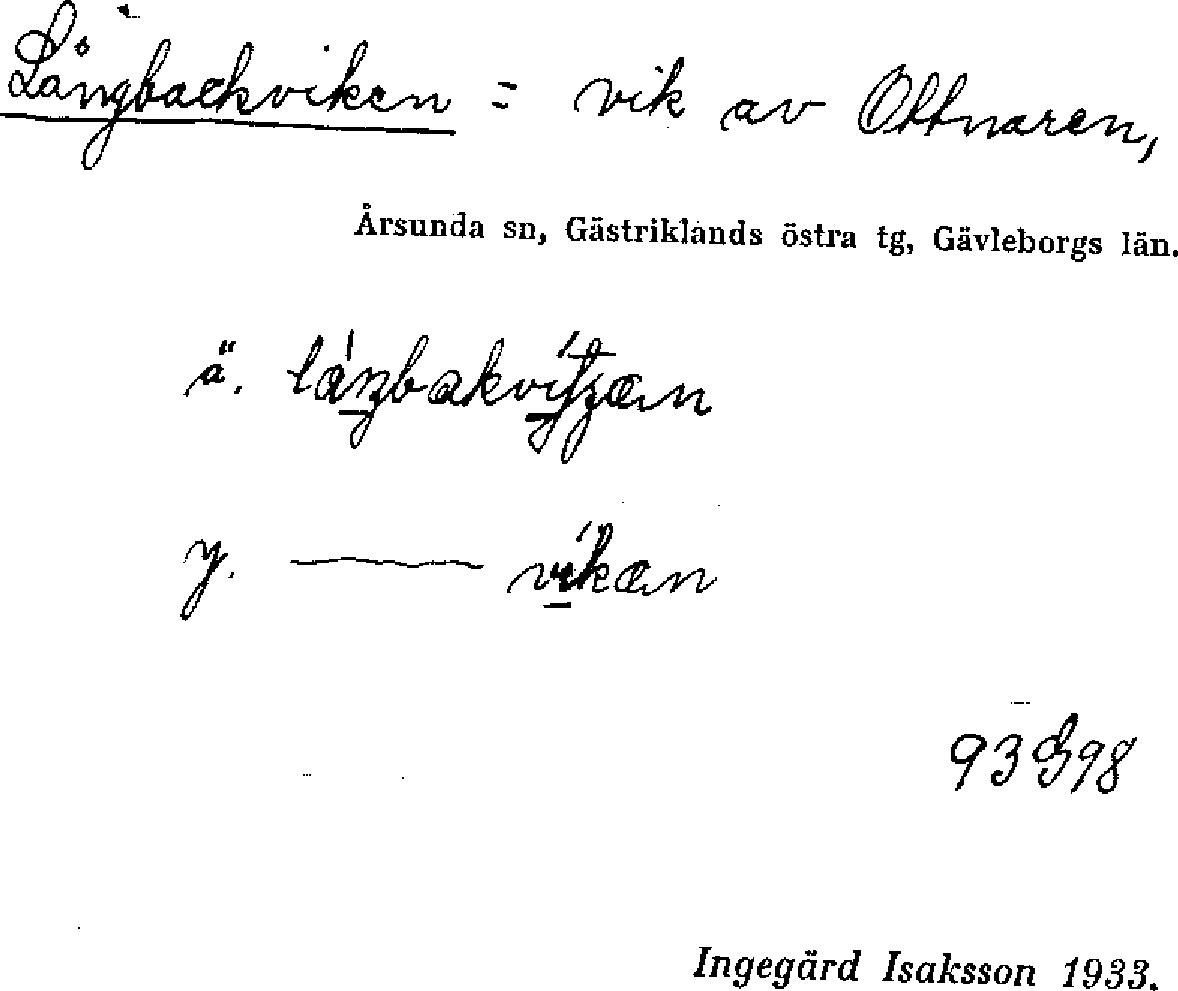 Långbackviken = vik av Ottnaren,
Årsunda sn, Gästriklands östra tg, Gävleborgs län.
ä.
y. ——— vikæn
93 G 98
Ingegärd Isaksson 1933.